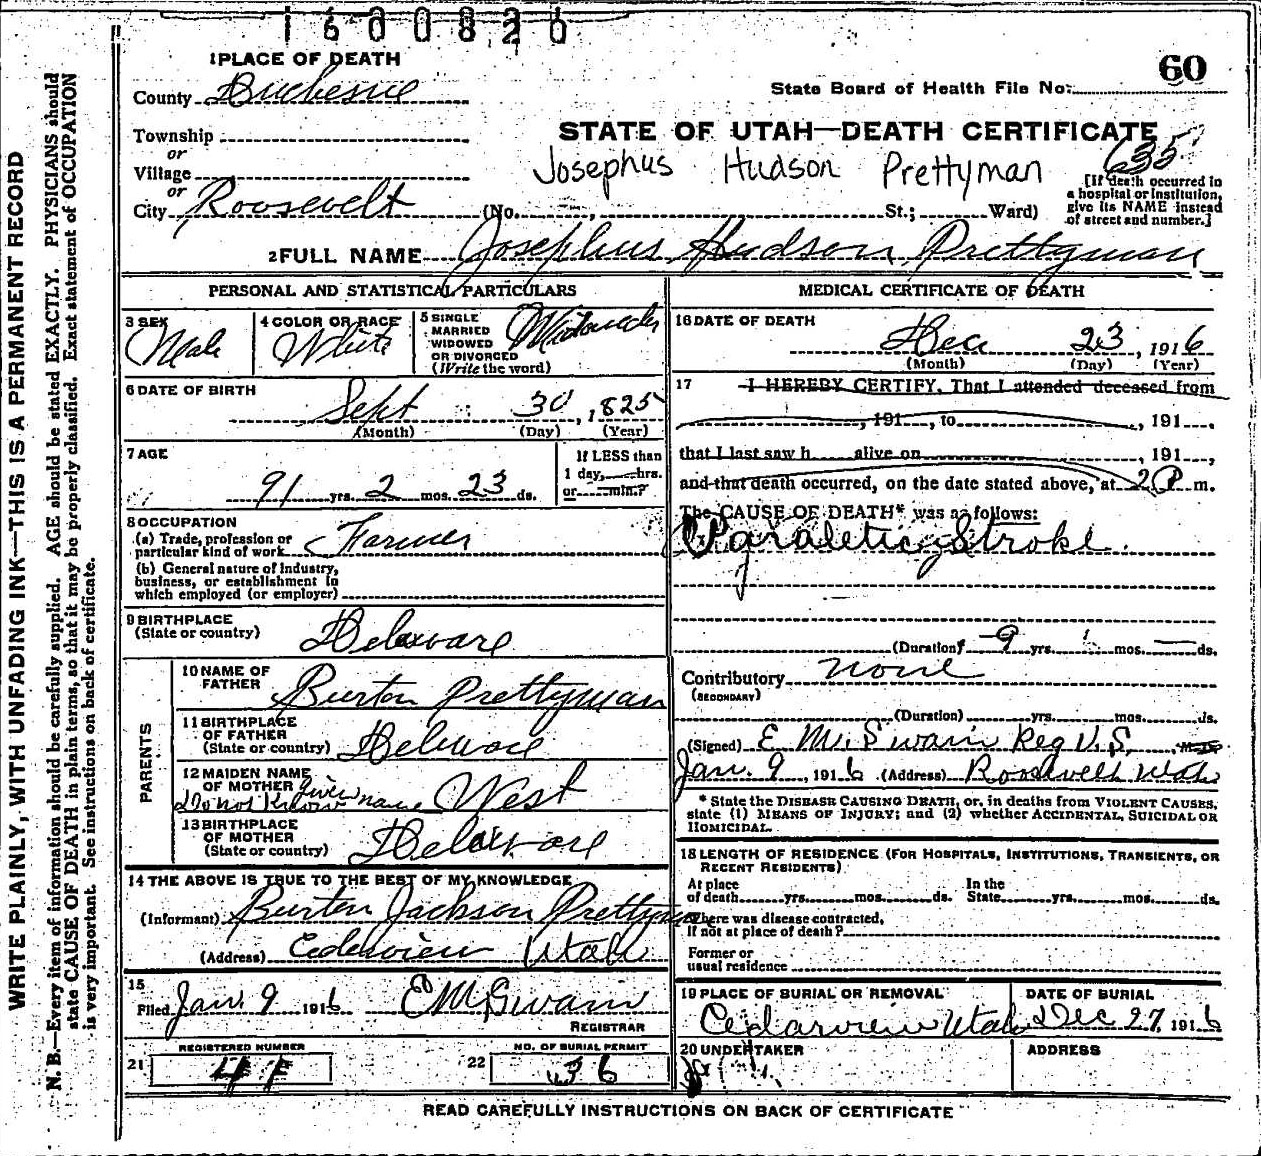 1600826
1 PLACE OF DEATH
60
County Duchesne
State Board of Health File No.
Township
or
STATE OF UTAH—DEATH CERTIFICATE
635
Village
or
Josephus Hudson Prettyman
City Roosevelt (No. , St.; Ward)
[If death occurred in
a hospital or institution,
give its NAME instead
of street and number.]
2 FULL NAME Josephus Hudson Prettyman
PERSONAL AND STATISTICAL PARTICULARS
3 SEX
Male
4 COLOR OR RACE
White
5 SINGLE
MARRIED
WIDOWED
OR DIVORCED
(Write the word)
Widowed
6 DATE OF BIRTH
Sept 30, 1825
(Month) (Day) (Year)
7 AGE
91 yrs. 2 mos. 23 ds.
If LESS than
1 day, hrs.
or min.?
8 OCCUPATION
(a) Trade, profession or
particular kind of work Farmer
(b) General nature of Industry,
business, or establishment in
which employed (or employer)
9 BIRTHPLACE
(State or country) Delaware
PARENTS
10 NAME OF
FATHER Burton Prettyman
11 BIRTHPLACE
OF FATHER
(State or country) Delaware
12 MAIDEN NAME
OF MOTHER West
Do not know given name
13 BIRTHPLACE
OF MOTHER
(State or country) Delaware
14 THE ABOVE IS TRUE TO THE BEST OF MY KNOWLEDGE
(Informant) Burton Jackson Prettyman
(Address) Cedarview Utah
15
Filed Jan. 9 1916 E M Swain
REGISTRAR
REGISTERED NUMBER
21
NO. OF BURIAL PERMIT
22 36
MEDICAL CERTIFICATE OF DEATH
16 DATE OF DEATH
Dec 23, 1916
(Month) (Day) (Year)
17 I HEREBY CERTIFY, That I attended deceased from
, 191 , to , 191 ,
that I last saw h alive on , 191 ,
and that death occurred, on the date stated above, at 2 P m.
The CAUSE OF DEATH* was as follows:
Paraletic Stroke.
(Duration) 9 yrs. mos. ds.
Contributory none
(SECONDARY)
(Duration) yrs. mos. ds.
(Signed) E M. Swain Reg V.S.
Jan. 9, 1916 (Address) Roosevelt Utah
* State the DISEASE CAUSING DEATH, or, in deaths from VIOLENT CAUSES,
state (1) MEANS OF INJURY; and (2) whether ACCIDENTAL, SUICIDAL OR
HOMICIDAL.
18 LENGTH OF RESIDENCE (FOR HOSPITALS, INSTITUTIONS, TRANSIENTS, OR
RECENT RESIDENTS)
At place
of death yrs. mos. ds.
In the
State yrs. mos. ds.
Where was disease contracted,
If not at place of death?
Former or
usual residence
19 PLACE OF BURIAL OR REMOVAL
Cedarview Utah
DATE OF BURIAL
Dec 27, 1916
20 UNDERTAKER
ADDRESS
READ CAREFULLY INSTRUCTIONS ON BACK OF CERTIFICATE
WRITE PLAINLY, WITH UNFADING INK—THIS IS A PERMANENT RECORD
N. B.—Every item of information should be carefully supplied. AGE should be stated EXACTLY. PHYSICIANS should
state CAUSE OF DEATH in plain terms, so that it may be properly classified. Exact statement of OCCUPATION
is very important. See instructions on back of certificate.